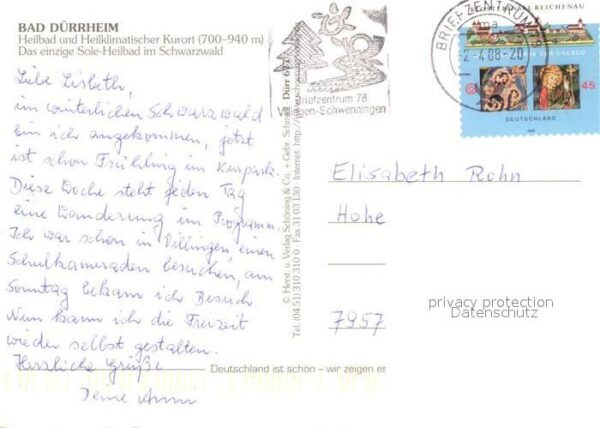 BAD DÜRRHEIM
Heilbad und Heilklimatischer Kurort (700–940 m)
Das einzige Sole-Heilbad im Schwarzwald
Liebe Lisbeth,
im winterlichen Schwarzwald
bin ich angekommen, jetzt
ist schon Frühling im Kurpark.
Diese Woche steht jeden Tag
eine Wanderung im Programm.
Ich war schon in Villingen, einen
Schulkameraden besuchen, am
Sonntag bekam ich Besuch.
Nun kann ich die Freizeit
wieder selbst gestalten.
Herzliche Grüße
Deine
© Horst u. Verlag Schöning & Co. + Gebr. Schmidt
Tel. (04 51) 310 310 0 · Fax 31 03 130 · Internet: http://
Dürr 677
Briefzentrum 78
Villingen-Schwenningen
BRIEFZENTRUM
2.-4.08-20
REICHENAU
UNESCO
45
DEUTSCHLAND
2008
Elisabeth Rohn
Hohe
7957
privacy protection
Datenschutz
Deutschland ist schön – wir zeigen es